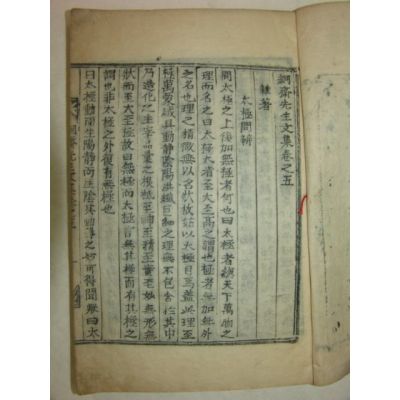 絅齋先生文集卷之五
雜著
太極問辨
問太極之上後加無極者何也曰太極者總天下萬物之
理而名之曰太極太者至大至高之謂也極者無加無外
之名也理之精微無以名狀故姑以太極目焉盖此理至
極萬變咸具動靜陰陽洪纖巨細之理無不包含於其中
乃造化之主宰品量之根柢至神至精至實至妙無形無
狀而至大至極故曰無極而太極言無其極而有其極之
謂也非太極之外復有無極也
曰太極動而生陽靜而生陰其動靜之妙可得聞歟曰太